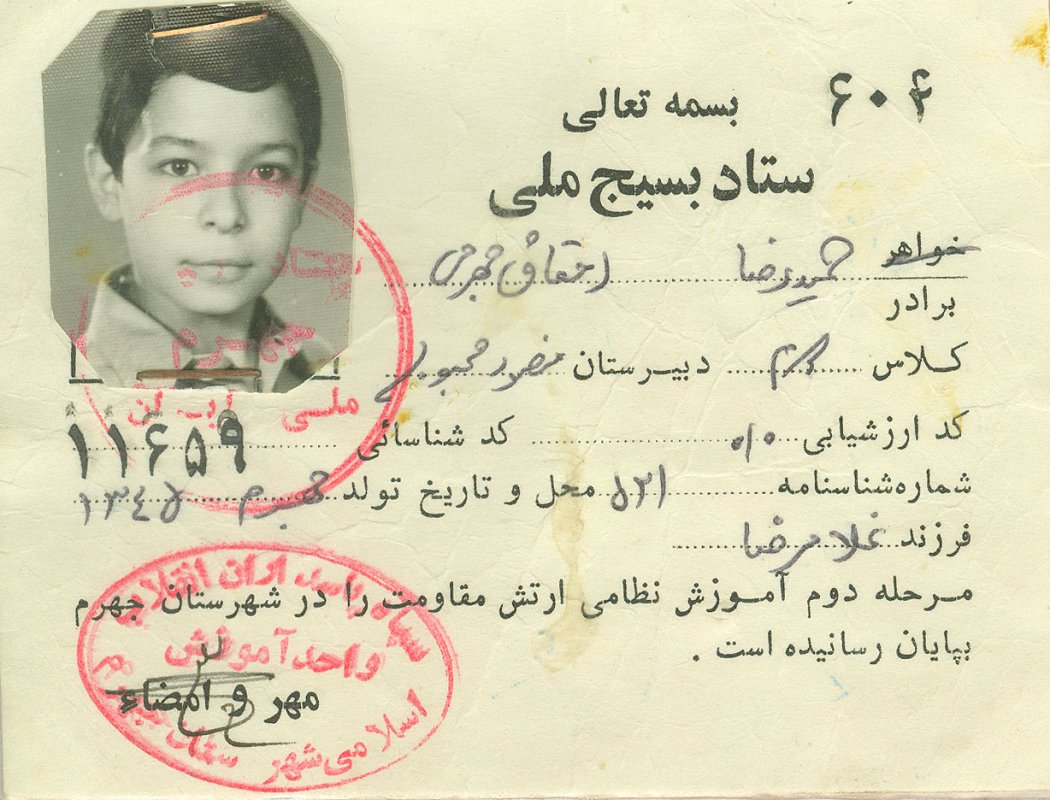 ۶۰۴
بسمه تعالی
ستاد بسیج ملی
خواهر
برادر حمیدرضا احقاقی جهرمی
کلاس دبیرستان منصور
کد ارزشیابی ۰/۵ کد شناسائی ۱۱۶۵۹
شماره شناسنامه ۵۲۱ محل و تاریخ تولد جهرم ۱۳۴۵
فرزند غلامرضا
مرحله دوم آموزش نظامی ارتش مقاومت را در شهرستان جهرم
بپایان رسانیده است .
مهر و امضاء
جهرم
ملی ایران
سپاه پاسداران انقلاب
واحد آموزش
اسلامی شهر ستاد جهرم